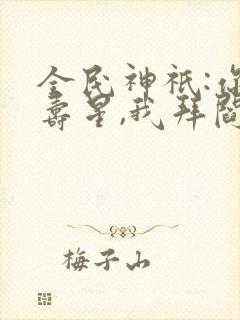 全民神祇:你
寿星,我拜阎
梅子山